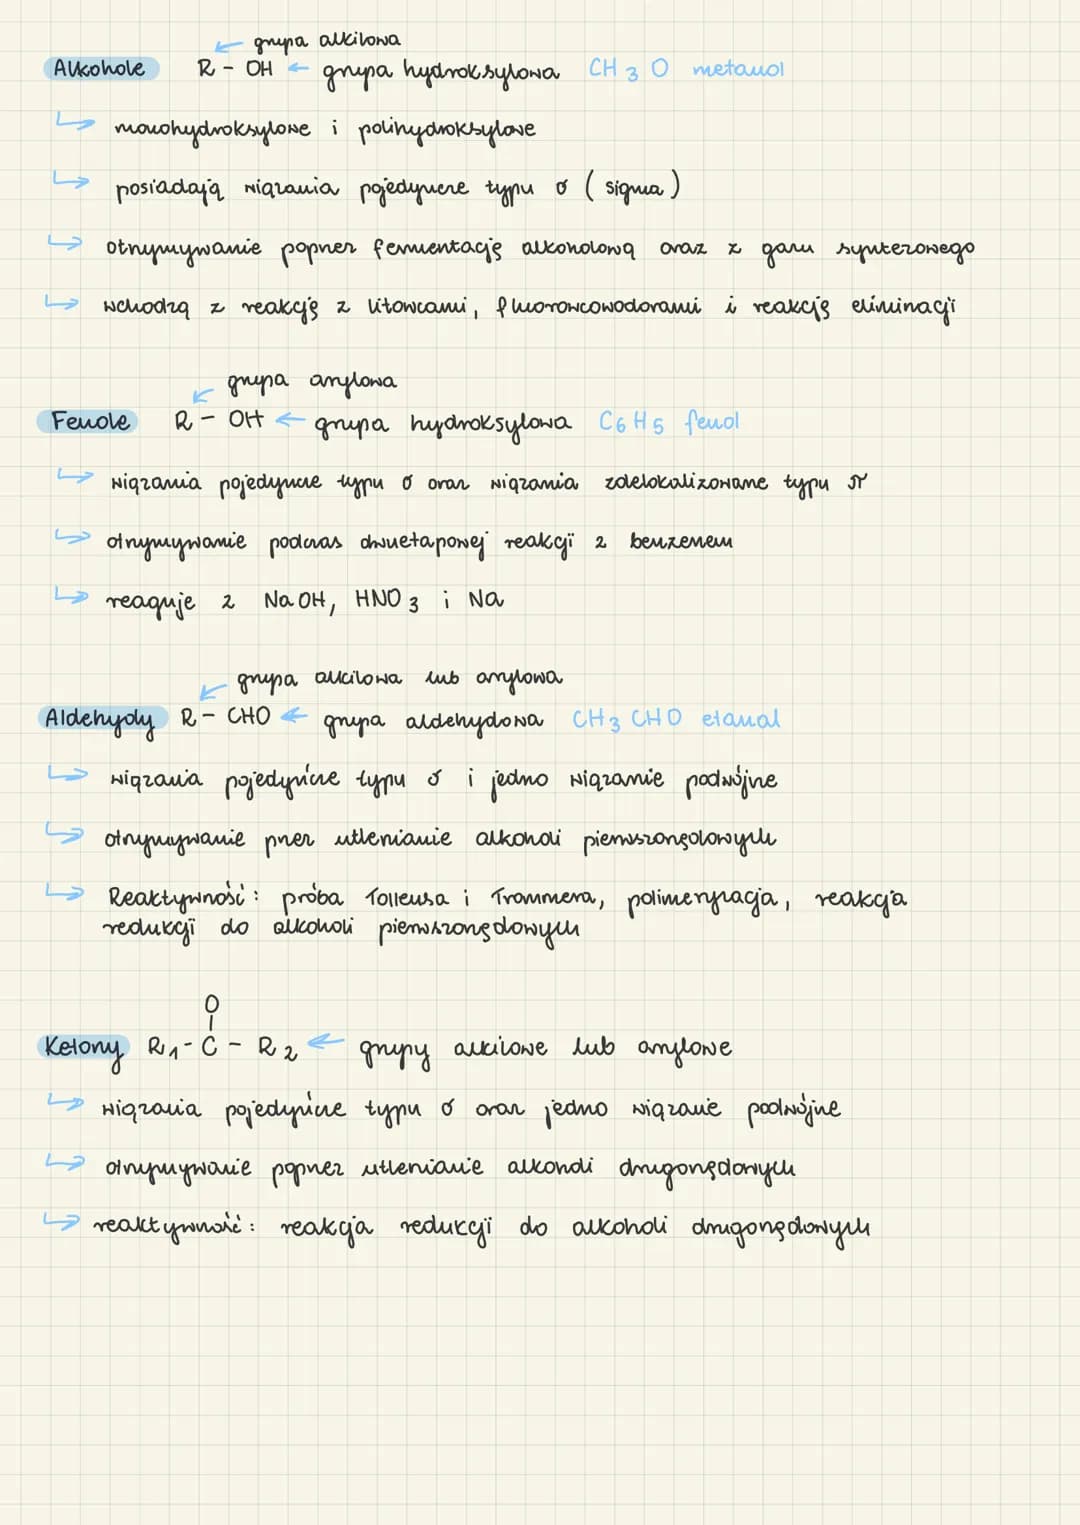 grupa alkilowa
Alkohole R - OH grupa hydroksylowa CH3O metanol
monohydroksylowe i polihydroksylowe
posiadają wiązania pojedyncze typu σ (sigma)
otrzymywanie poprzez fermentację alkoholową oraz z gazu syntezowego
wchodzą z reakcję z litowcami, fluorowcowodorami i reakcję eliminacji
grupa arylowa
Fenole R - OH grupa hydroksylowa C6H5 fenol
wiązania pojedyncze typu σ oraz wiązania zdelokalizowane typu π
otrzymywanie podczas dwuetapowej reakcji z benzenem
reaguje z NaOH, HNO3 i Na
grupa alkilowa lub arylowa
Aldehydy R - CHO grupa aldehydowa CH3CHO etanal
wiązania pojedyńcze typu σ i jedno wiązanie podwójne
otrzymywanie przez utlenianie alkoholi pierwszorzędowych
Reaktywność: próba Tollensa i Trommera, polimeryzacja, reakcja
redukcji do alkoholi pierwszorzędowych
O
Ketony R1 - C - R2 grupy alkilowe lub arylowe
wiązania pojedyńcze typu σ oraz jedno wiązanie podwójne
otrzymywanie poprzez utlenianie alkoholi drugorzędowych
reaktywność: reakcja redukcji do alkoholi drugorzędowych